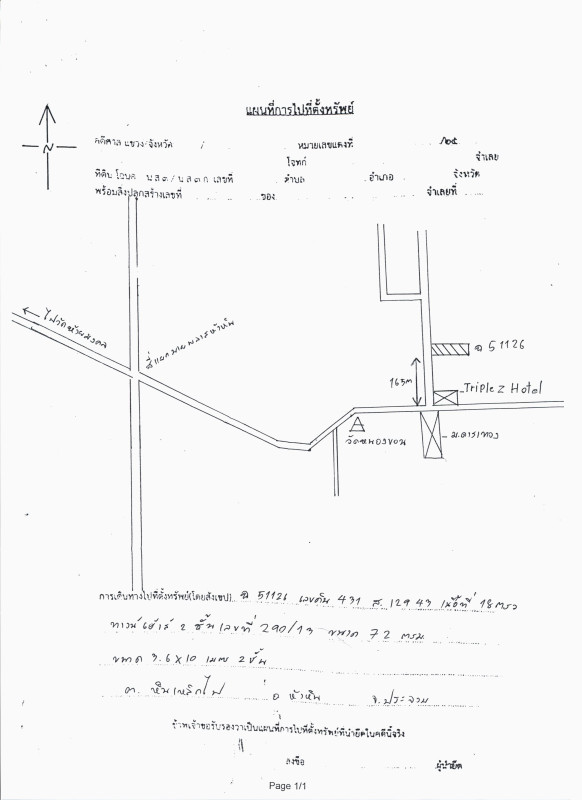 แผนที่การไปที่ตั้งทรัพย์
N
คดีศาล แขวง/จังหวัด / หมายเลขแดงที่ /๒๕
โจทก์ จำเลย
ที่ดิน โฉนด น.ส.๓/น.ส.๓ ก. เลขที่ ตำบล อำเภอ จังหวัด
พร้อมสิ่งปลูกสร้างเลขที่ ของ จำเลยที่
ไปวัดห้วยมงคล
สี่แยก หัวหิน
ฉ 51126
165m
Triple Z Hotel
วัดหนองขอน
ม.ดาราทอง
การเดินทางไปที่ตั้งทรัพย์(โดยสังเขป) ฉ 51126 เลขดิน 431 ส. 12943 เนื้อที่ 18 ตรว
ทาวน์เฮ้าส์ 2 ชั้น เลขที่ 290/13 ขนาด 72 ตรม
ขนาด 3.6x10 เมตร 2 ชั้น
ต. หินเหล็กไฟ อ หัวหิน จ.ประจวบ
ข้าพเจ้าขอรับรองว่าเป็นแผนที่การไปที่ตั้งทรัพย์ที่นำยึดในคดีนี้จริง
ลงชื่อ ผู้นำยึด
Page 1/1